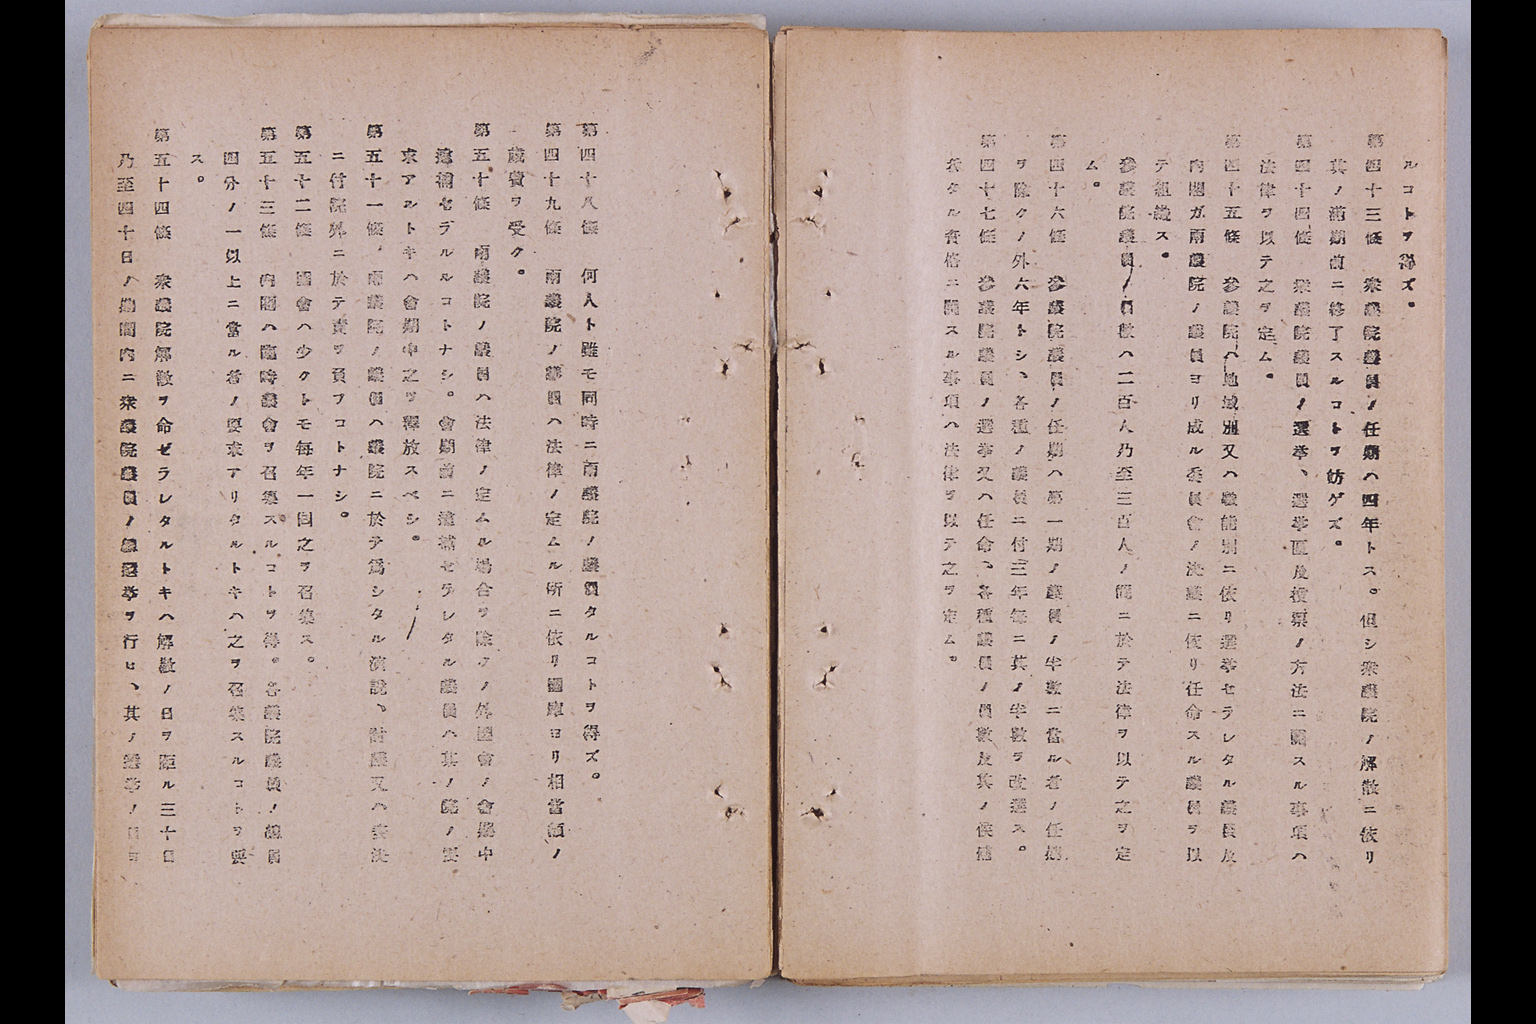 ルコトヲ得ズ。
第四十三條　衆議院議員ノ任期ハ四年トス。但シ衆議院ノ解散ニ依リ
其ノ滿期前ニ終了スルコトヲ妨ゲズ。
第四十四條　衆議院議員ノ選擧、選擧區及投票ノ方法ニ關スル事項ハ
法律ヲ以テ之ヲ定ム。
第四十五條　參議院ハ地域別又ハ職能別ニ依リ選擧セラレタル議員及
內閣ガ兩議院ノ議員ヨリ成ル委員會ノ決議ニ依リ任命スル議員ヲ以
テ組織ス。
參議院議員ノ員數ハ二百人乃至三百人ノ間ニ於テ法律ヲ以テ之ヲ定
ム。
第四十六條　參議院議員ノ任期ハ第一期ノ議員ノ半數ニ當ル者ノ任期
ヲ除クノ外六年トシ、各種ノ議員ニ付三年每ニ其ノ半數ヲ改選ス。
第四十七條　參議院議員ノ選擧又ハ任命、各種議員ノ員數及其ノ候補
者タル資格ニ關スル事項ハ法律ヲ以テ之ヲ定ム。
第四十八條　何人ト雖モ同時ニ兩議院ノ議員タルコトヲ得ズ。
第四十九條　兩議院ノ議員ハ法律ノ定ムル所ニ依リ國庫ヨリ相當額ノ
歲費ヲ受ク。
第五十條　兩議院ノ議員ハ法律ノ定ムル場合ヲ除クノ外國會ノ會期中
逮捕セラルルコトナシ。會期前ニ逮捕セラレタル議員ハ其ノ院ノ要
求アルトキハ會期中之ヲ釋放スベシ。
第五十一條　兩議院ノ議員ハ議院ニ於テ爲シタル演說、討議又ハ表決
ニ付院外ニ於テ責ヲ負フコトナシ。
第五十二條　國會ハ少クトモ每年一回之ヲ召集ス。
第五十三條　內閣ハ臨時議會ヲ召集スルコトヲ得。各議院議員ノ總員
四分ノ一以上ニ當ル者ノ要求アリタルトキハ之ヲ召集スルコトヲ要
ス。
第五十四條　衆議院解散ヲ命ゼラレタルトキハ解散ノ日ヲ距ル三十日
乃至四十日ノ期間內ニ衆議院議員ノ總選擧ヲ行ヒ、其ノ選擧ノ日ヲ